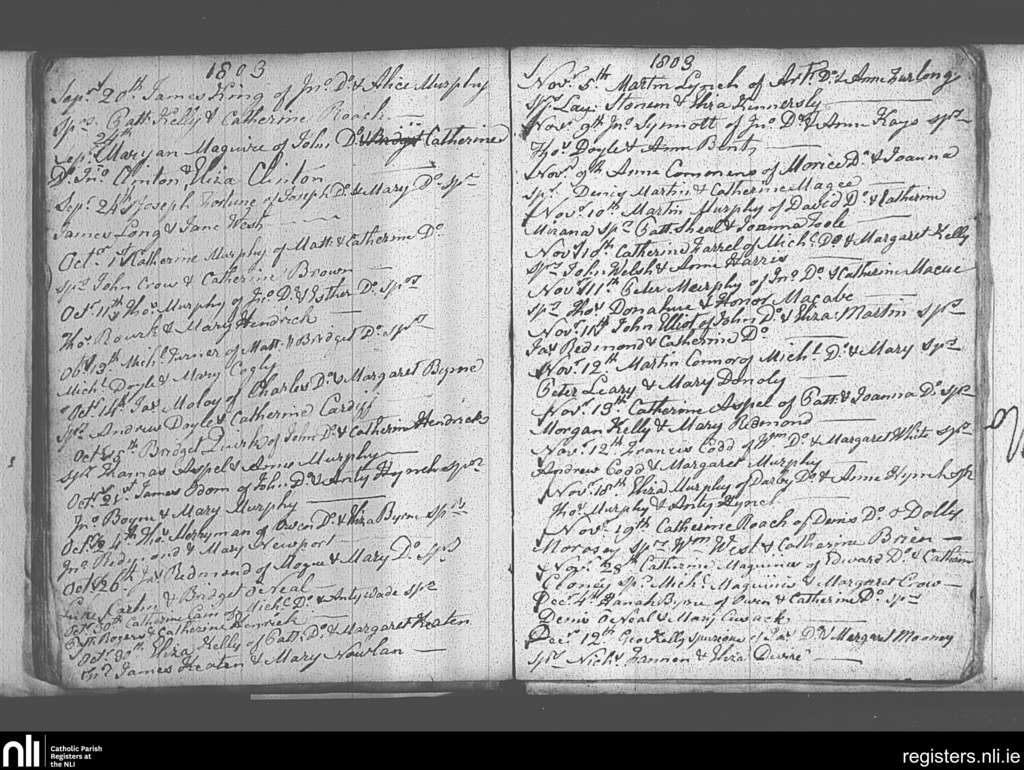 1803
Sepr. 20th James King of Jno. Do. & Alice Murphy
Sprs. Patt: Kelly & Catherine Roach
Sepr. 24th Maryan Maguire of John Do. & Catherine
Do. Jno. Clinton & Eliza Clinton
Sepr. 24th Joseph Fortune of Joseph Do. & Mary Do. Sprs
James Long & Jane West
Octr. 1st Katherine Murphy of Matt: & Catherine Do.
Sprs. John Crow & Catherine Brown
Octr. 11th Thos. Murphy of Jno. Do. & Esther Do. Sprs
Thos. Rourk & Mary Hendrick
Obr. 13th Michl. Turner of Matt: & Bridget Do. Sprs
Michl. Doyle & Mary Cogly
Octr. 14th Jas. Moloy of Charles Do. & Margaret Byrne
Sprs. Andrew Doyle & Catherine Cardiff
Octr. 15th Bridget Quirk of John Do. & Catherin Hendrick
Sprs. Thomas Aspel & Annes Murphy
Octr. 21st James Odom of John Do. & Anty Hynch Sprs
Jno. Boyne & Mary Murphy
Octr. 4th Thos. Merryman of Owen Do. & Eliza Byrne Sprs
Jno. Redmond & Mary Newport
Octr. 26th Jas. Redmond of Mogue & Mary Do. Sprs
Luke Carlin & Bridget oNeal
Octr. Catherine of Michl. Do. & Anty Wade Sprs
Rogers & Catherine
Octr. 30th Eliza Kelly of Patt: Do. & Margaret Keaten
Sprs. James Keaten & Mary Nowlan
1803
Novr. 5th Martin Lynch of Arthr. Do. & Anne Furlong
Sprs. Lay: Stonem & Eliza Kennersly
Novr. 9th Jno. Synnott of Jno. Do. & Ann Kays Sprs
Thos. Doyle & Ann Bent
Novr. 9th Anne Commons of Morice Do. & Joanna
Sprs. Denis Martin & Catherine Magee
Novr. 10th Martin Murphy of David Do. & Catherine
Sprs. Patt: Sheal & Joanna Toole
Novr. 10th Catherine Farrel of Michl. Do. & Margaret Kelly
Sprs. John Welsh & Anne Harris
Novr. 11th Peter Murphy of Jno. Do. & Catherine Macue
Sprs. Thos. Donahue & Honor Macabe
Novr. 11th John Elliot of John Do. & Eliza: Martin Sprs
Jas. Redmond & Catherine Do.
Novr. 12th Martin Connor of Michl. Do. & Mary Sprs
Peter Leary & Mary Donoly
Novr. 13th Catherine Aspel of Patt: & Joanna Do. Sprs
Morgan Kelly & Mary Redmond
Novr. 12th Francis Codd of Wm. Do. & Margaret White Sprs
Andrew Codd & Margaret Murphy
Novr. 18th Eliza Murphy of Darby Do. & Anne Hynch Spr
Thos. Murphy & Anty Hynch
Novr. 19th Catherine Roach of Denis Do. & Dolly
Morosey Sprs. Wm. West & Catherine Brien
Novr. 28th Catherine Maguines of Edward Do. & Catharn
Cloney Sprs. Michl. Maguines & Margaret Crow
Decr. 4th Hanah Byrne of Owen & Catherine Do. Sprs
Denis oNeal & Mary Cusack
Decr. 12th Geo: Kelly spurious of Jas. Do. & Margaret Mooney
Sprs. Nichs. Fannen & Eliza
nli
Catholic Parish
Registers at
the NLI
registers.nli.ie